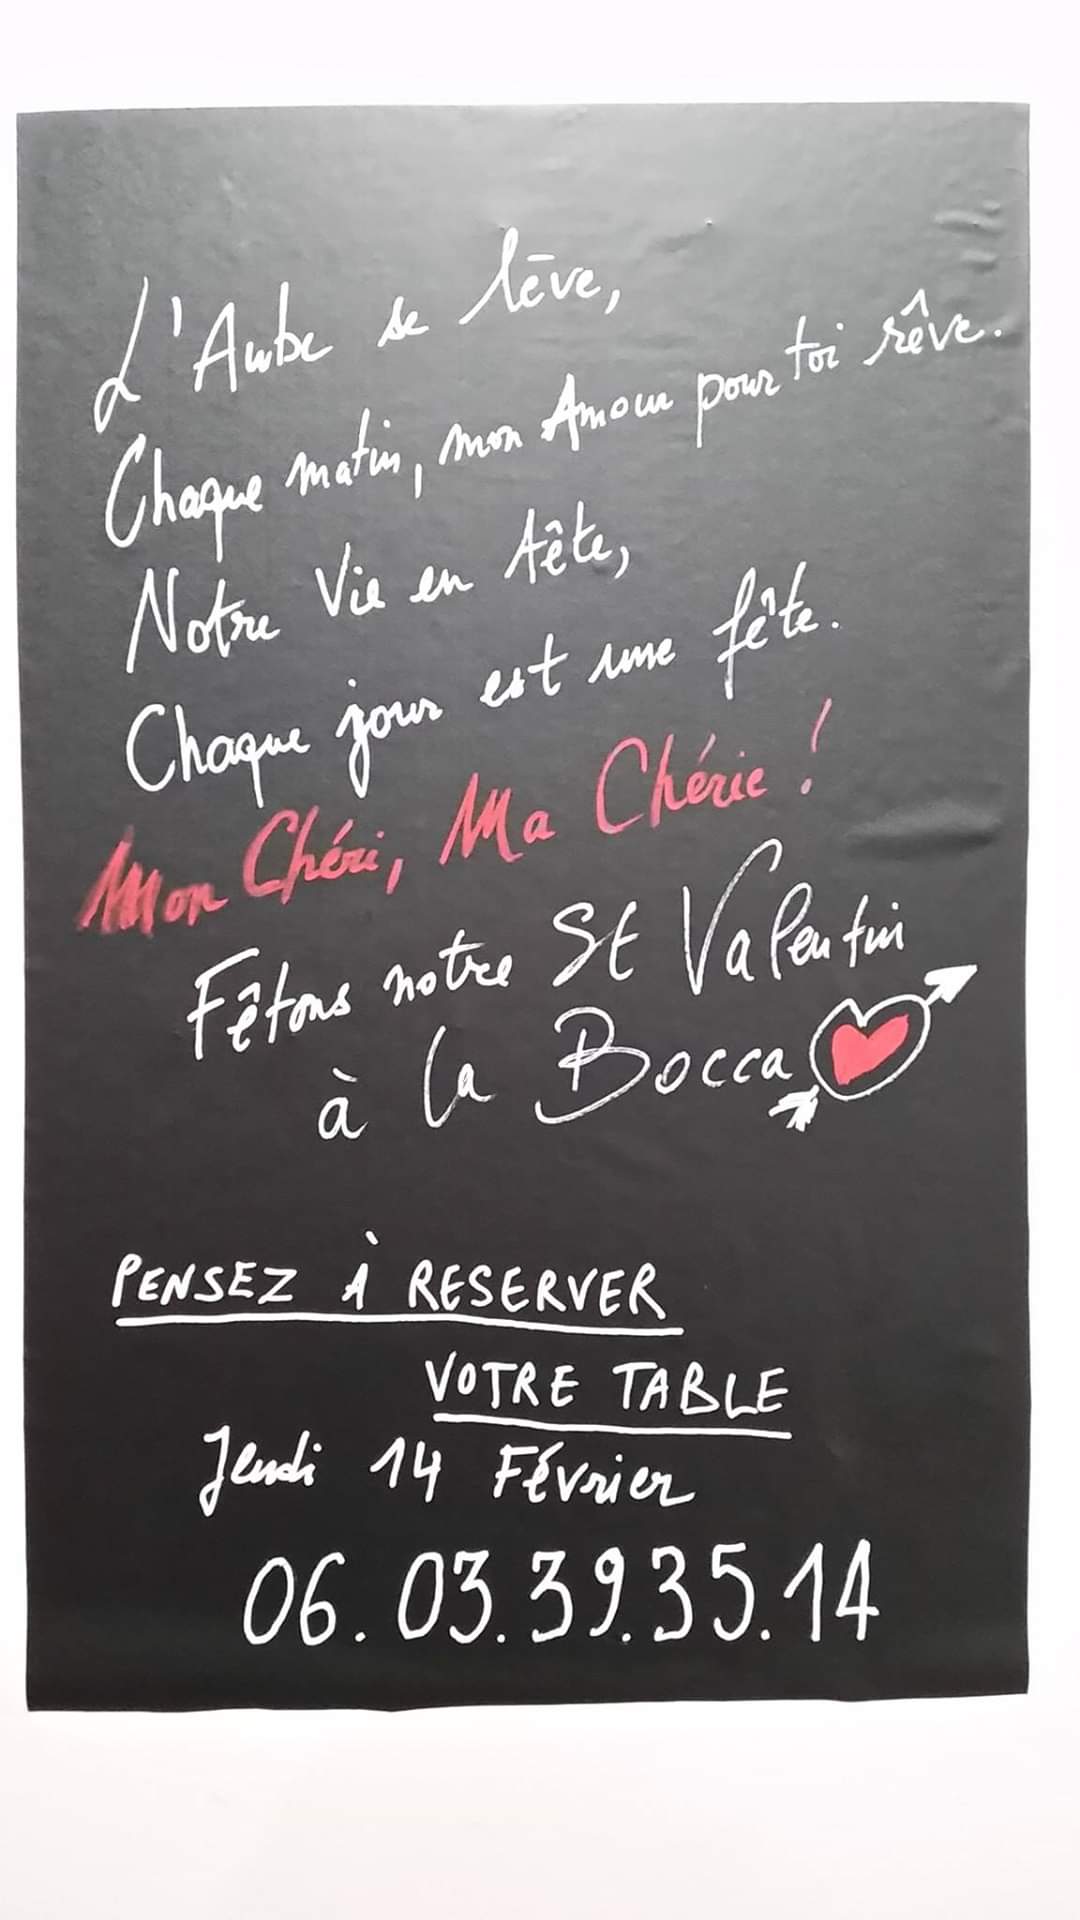 L'Aube se lève,
Chaque matin, mon Amour pour toi rêve.
Notre Vie en tête,
Chaque jour est une fête.
Mon Chéri, Ma Chérie !
Fêtons notre St Valentin
à la Bocca
PENSEZ À RESERVER
VOTRE TABLE
Jeudi 14 Février
06.03.39.35.14